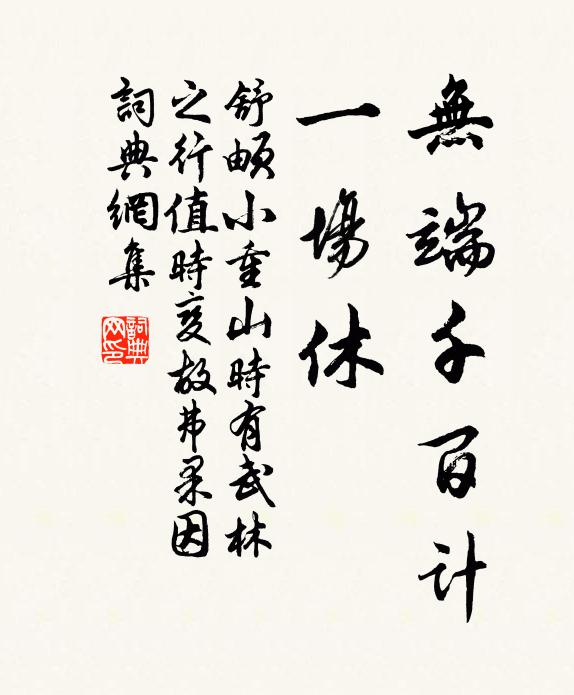 無端千百計
一場休
舒頔小重山時有武林
之行值時変故弗果因
詞典網集
詞典
网印